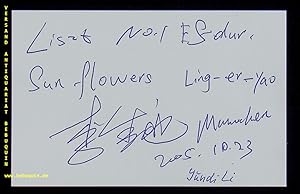 VERSAND ANTIQUARIAT BEBUQUIN
www.bebuquin.de
Liszt No.1 ES-dur.
Sun flowers Ling-er-Yao
Munuchen
2005. 10.23
Yundi Li